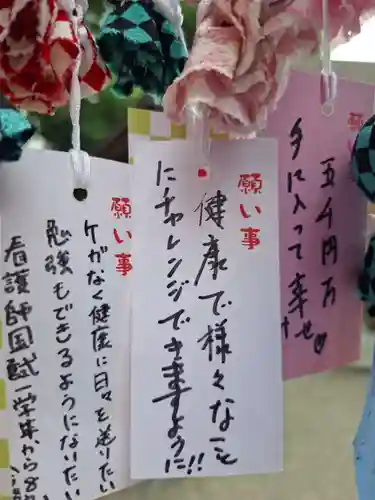 願
五千円万
手に入って幸せ♡
願い事
健康で様々なこと
にチャレンジできますように!!
願い事
ケガなく健康に日々を送りたい
勉強もできるようになりたい
看護師国試一学年から8